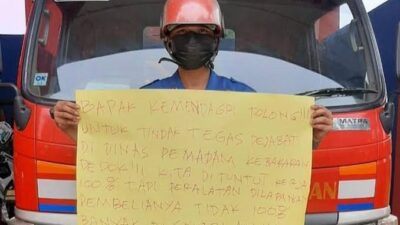 OK
MAITRA
BAPAK KEMENDAGRI TOLONG!!!
UNTUK TINDAK TEGAS PEJABAT
DI DINAS PEMADAM KEBAKARAN
DEPOK!!! KITA DITUNTUT KERJA
100% TAPI PERALATAN DILAPANGAN
PEMBELIANYA TIDAK 100%
BANYAK